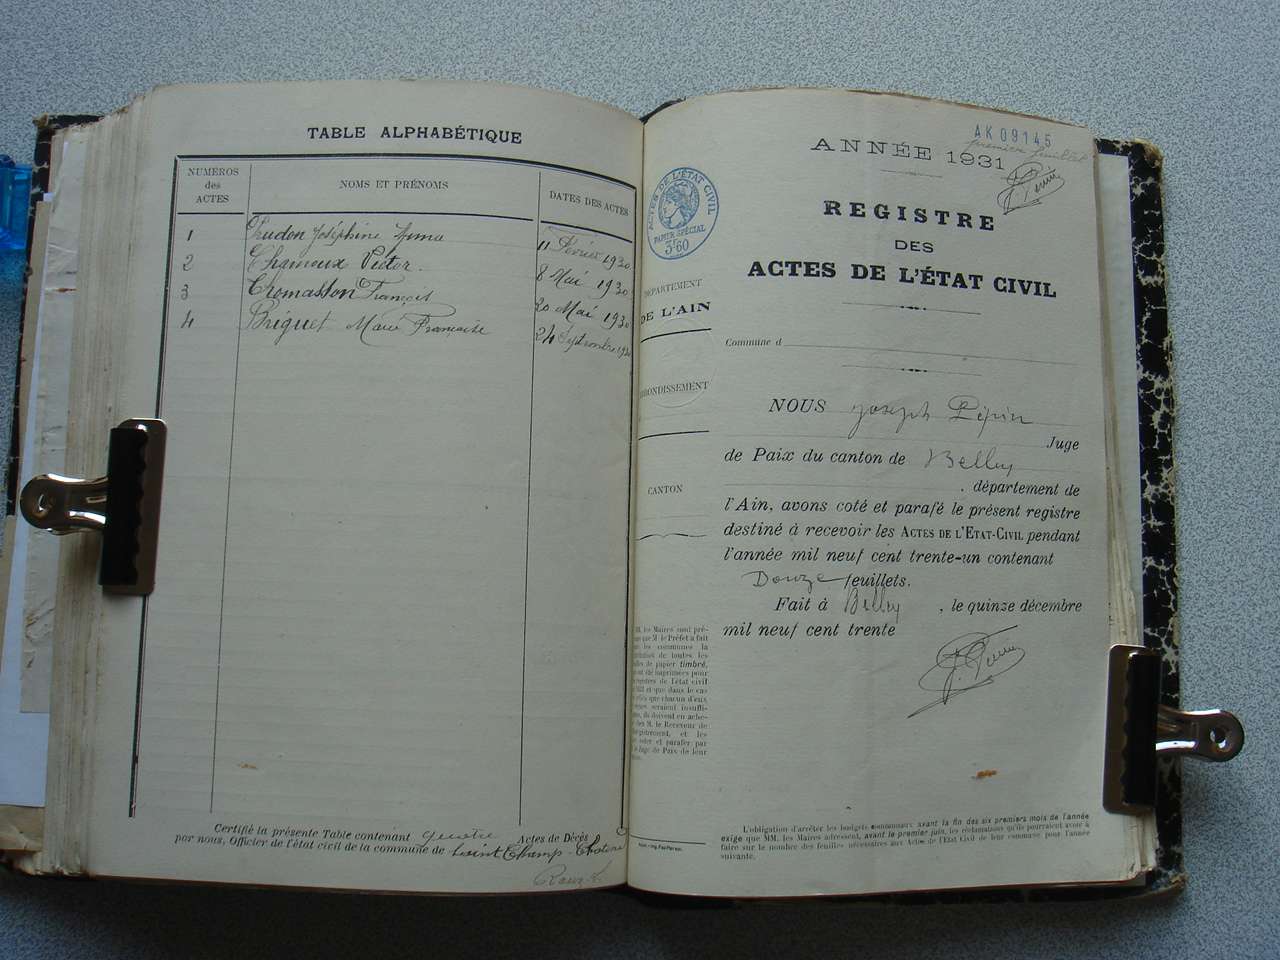 TABLE ALPHABÉTIQUE
NUMÉROS
des
ACTES
NOMS ET PRÉNOMS
DATES DES ACTES
1 Chudon Joséphine Anna 11 Février 1930
2 Chameux Victor. 8 Mai 1930
3 Tromasson François 20 Mai 1930
4 Briguet Marie Françoise 24 Septembre 1930
Certifié la présente Table contenant quatre Actes de Décès
par nous, Officier de l'état civil de la commune de Saint Champ-
AK09145
premier feuillet
ANNÉE 1931
J. Pépin
ACTES DE L'ÉTAT CIVIL
PAPIER SPÉCIAL
3F60
REGISTRE
DES
ACTES DE L'ÉTAT CIVIL
DÉPARTEMENT
DE L'AIN
Commune d
RONDISSEMENT
CANTON
NOUS Joseph Pépin
Juge
de Paix du canton de Belley
, département de
l'Ain, avons coté et parafé le présent registre
destiné à recevoir les ACTES DE L'ETAT-CIVIL pendant
l'année mil neuf cent trente-un contenant
Douze feuillets.
Fait à Belley, le quinze décembre
mil neuf cent trente
J. Pépin
MM. les Maires sont pré-
que M. le Préfet a fait
les communes la
de toutes les
de papier timbré,
été imprimées pour
registres de l'état civil
et que dans le cas
que chacun d'eux
seraient insuffi-
ils doivent en ache-
chez M. le Receveur de
et les
coter et parafer par
le Juge de Paix de leur
L'obligation d'arrêter les budgets communaux avant la fin des six premiers mois de l'année
exige que MM. les Maires adressent, avant le premier juin, les réclamations qu'ils pourraient avoir à
faire sur le nombre des feuilles nécessaires aux Actes de l'Etat Civil de leur commune pour l'année
suivante.